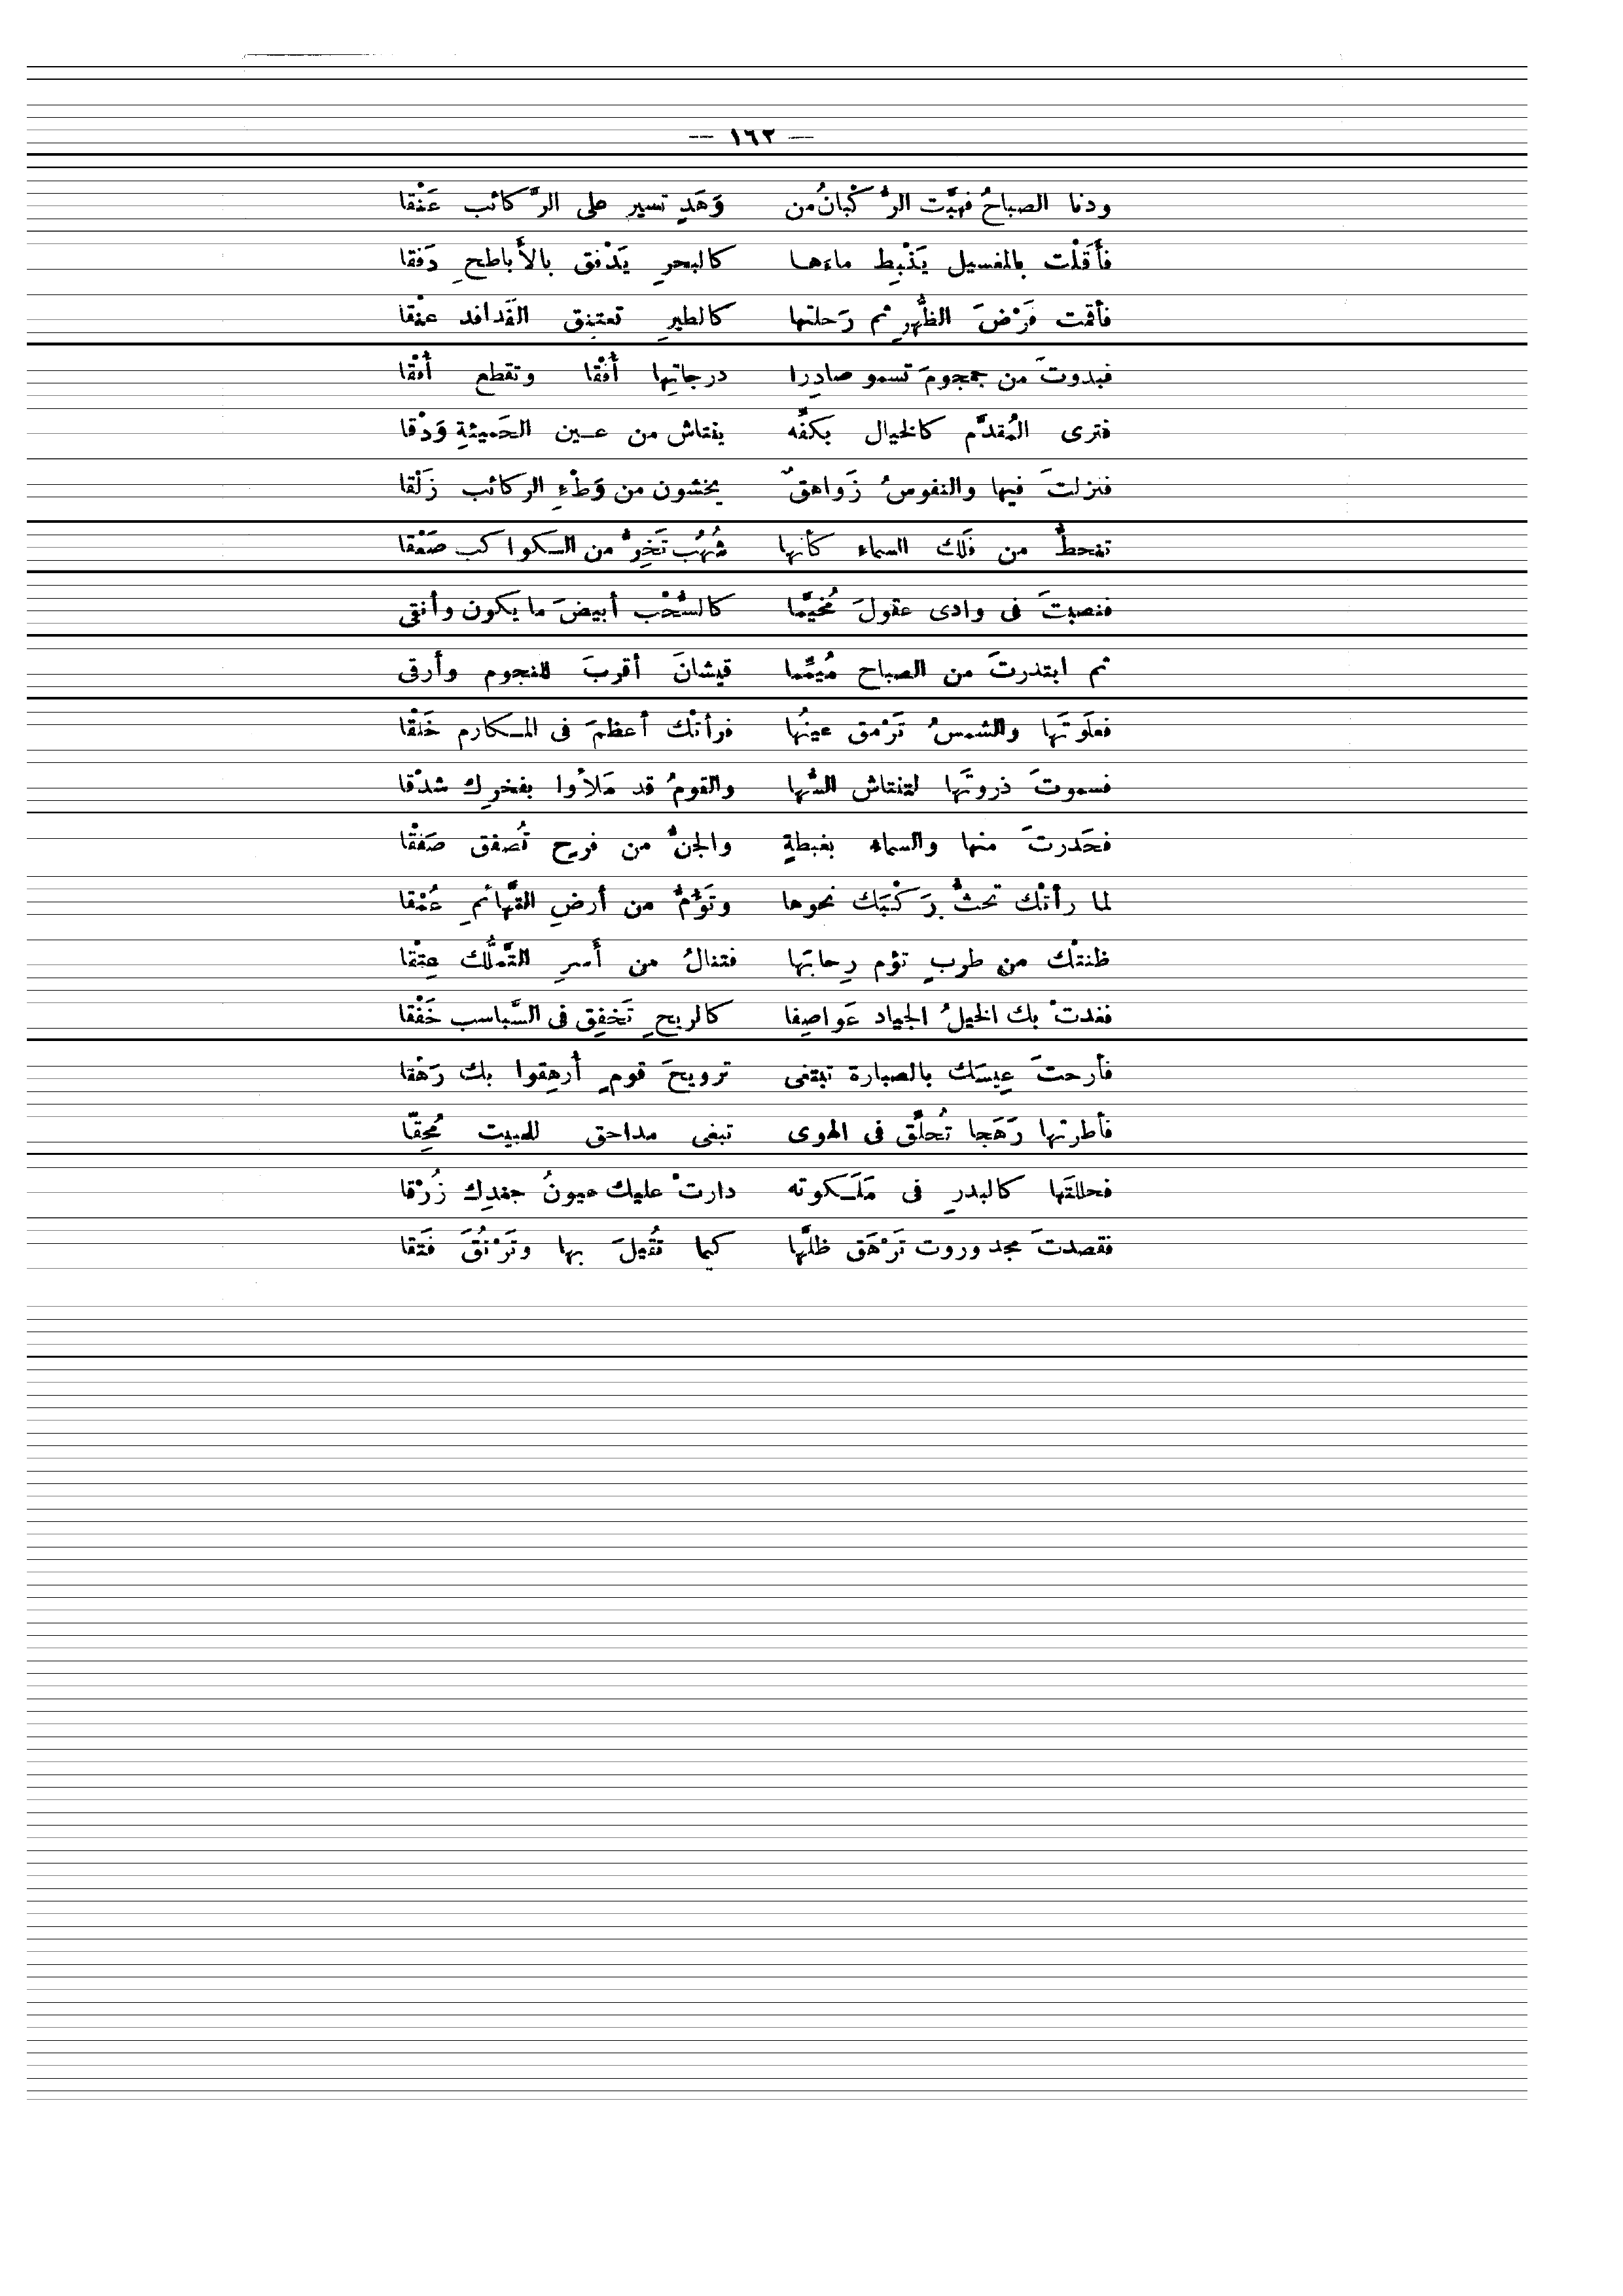 — ١٦٢ —
ودنا الصباحُ فهبَّت الرُّكْبانُ من وَهَدٍ تسير على الرَّكائب عَنْقا
فأقَلْت بالغسيل يَنْبِط ماءها كالبحرِ يَدْفق بالأَباطحِ دَفقا
فأقمت فَرْضَ الظُّهرِ ثم رَحلتها كالطيرِ تعتنِق الفَدافد عنْقا
فبدوتَ من جمجومَ تسمو صادِرا درجاتِها أُفْقا وتقطع أُفْقا
فترى المُقدَّم كالخيال بكفِّه يفتاش من عـين الحَميئةِ وَدْقا
فنزلتَ فيها والنفوسُ زَواهقٌ يخشون من وَطْءِ الركائب زَلْقا
تنحطُّ من فَلك السماء كأنها شُهُب تَخِرُّ من الـكواكب صَعْقا
فنصبتَ فى وادى عقولَ مُخيَّما كالسُّحْب أبيضَ ما يكون وأنقى
ثم ابتدرتَ من الصباح مُيمِّما قيشانَ أقربَ للنجوم وأرقى
فعلَوتَها والشمسُ تَرْمق عينُها فرأتْك أعظمَ فى المـكارم خَلْقا
فسموتَ ذروتَها لتنتاش السُّها والقومُ قد مَلأوا بفخرِك شدْقا
فحَدرتَ منها والسماء بغبطةٍ والجنُّ من فرحٍ تُصفق صَفْقا
لما رأتْك تحثُّ رَكْبَك نحوها وتَؤمُّ من أرضِ التَّهائمِ عُمْقا
ظنتْك من طربٍ تؤم رِحابَها فتنالُ من أَسرِ التَّملُّك عِتْقا
فغدتْ بك الخيلُ الجياد عَواصِفا كالريحِ تَخفِق فى السَّباسب خَفْقا
فأرحتَ عِيسَك بالصبارة تبتغى ترويحَ قومٍ أُرهِقوا بك رَهْقا
فأطرتها رَهَجا تُحلِّق فى الهوى تبغى مداحق للمبيت مُحِقّا
فحللتَها كالبدرِ فى مَلَـكوته دارتْ عليك عيونُ جندِك زُرْقا
فقصدتَ مجد وروت تَرْهَق ظلَّها كيما تُقيلَ بها وتَرْتُقَ فَتقا